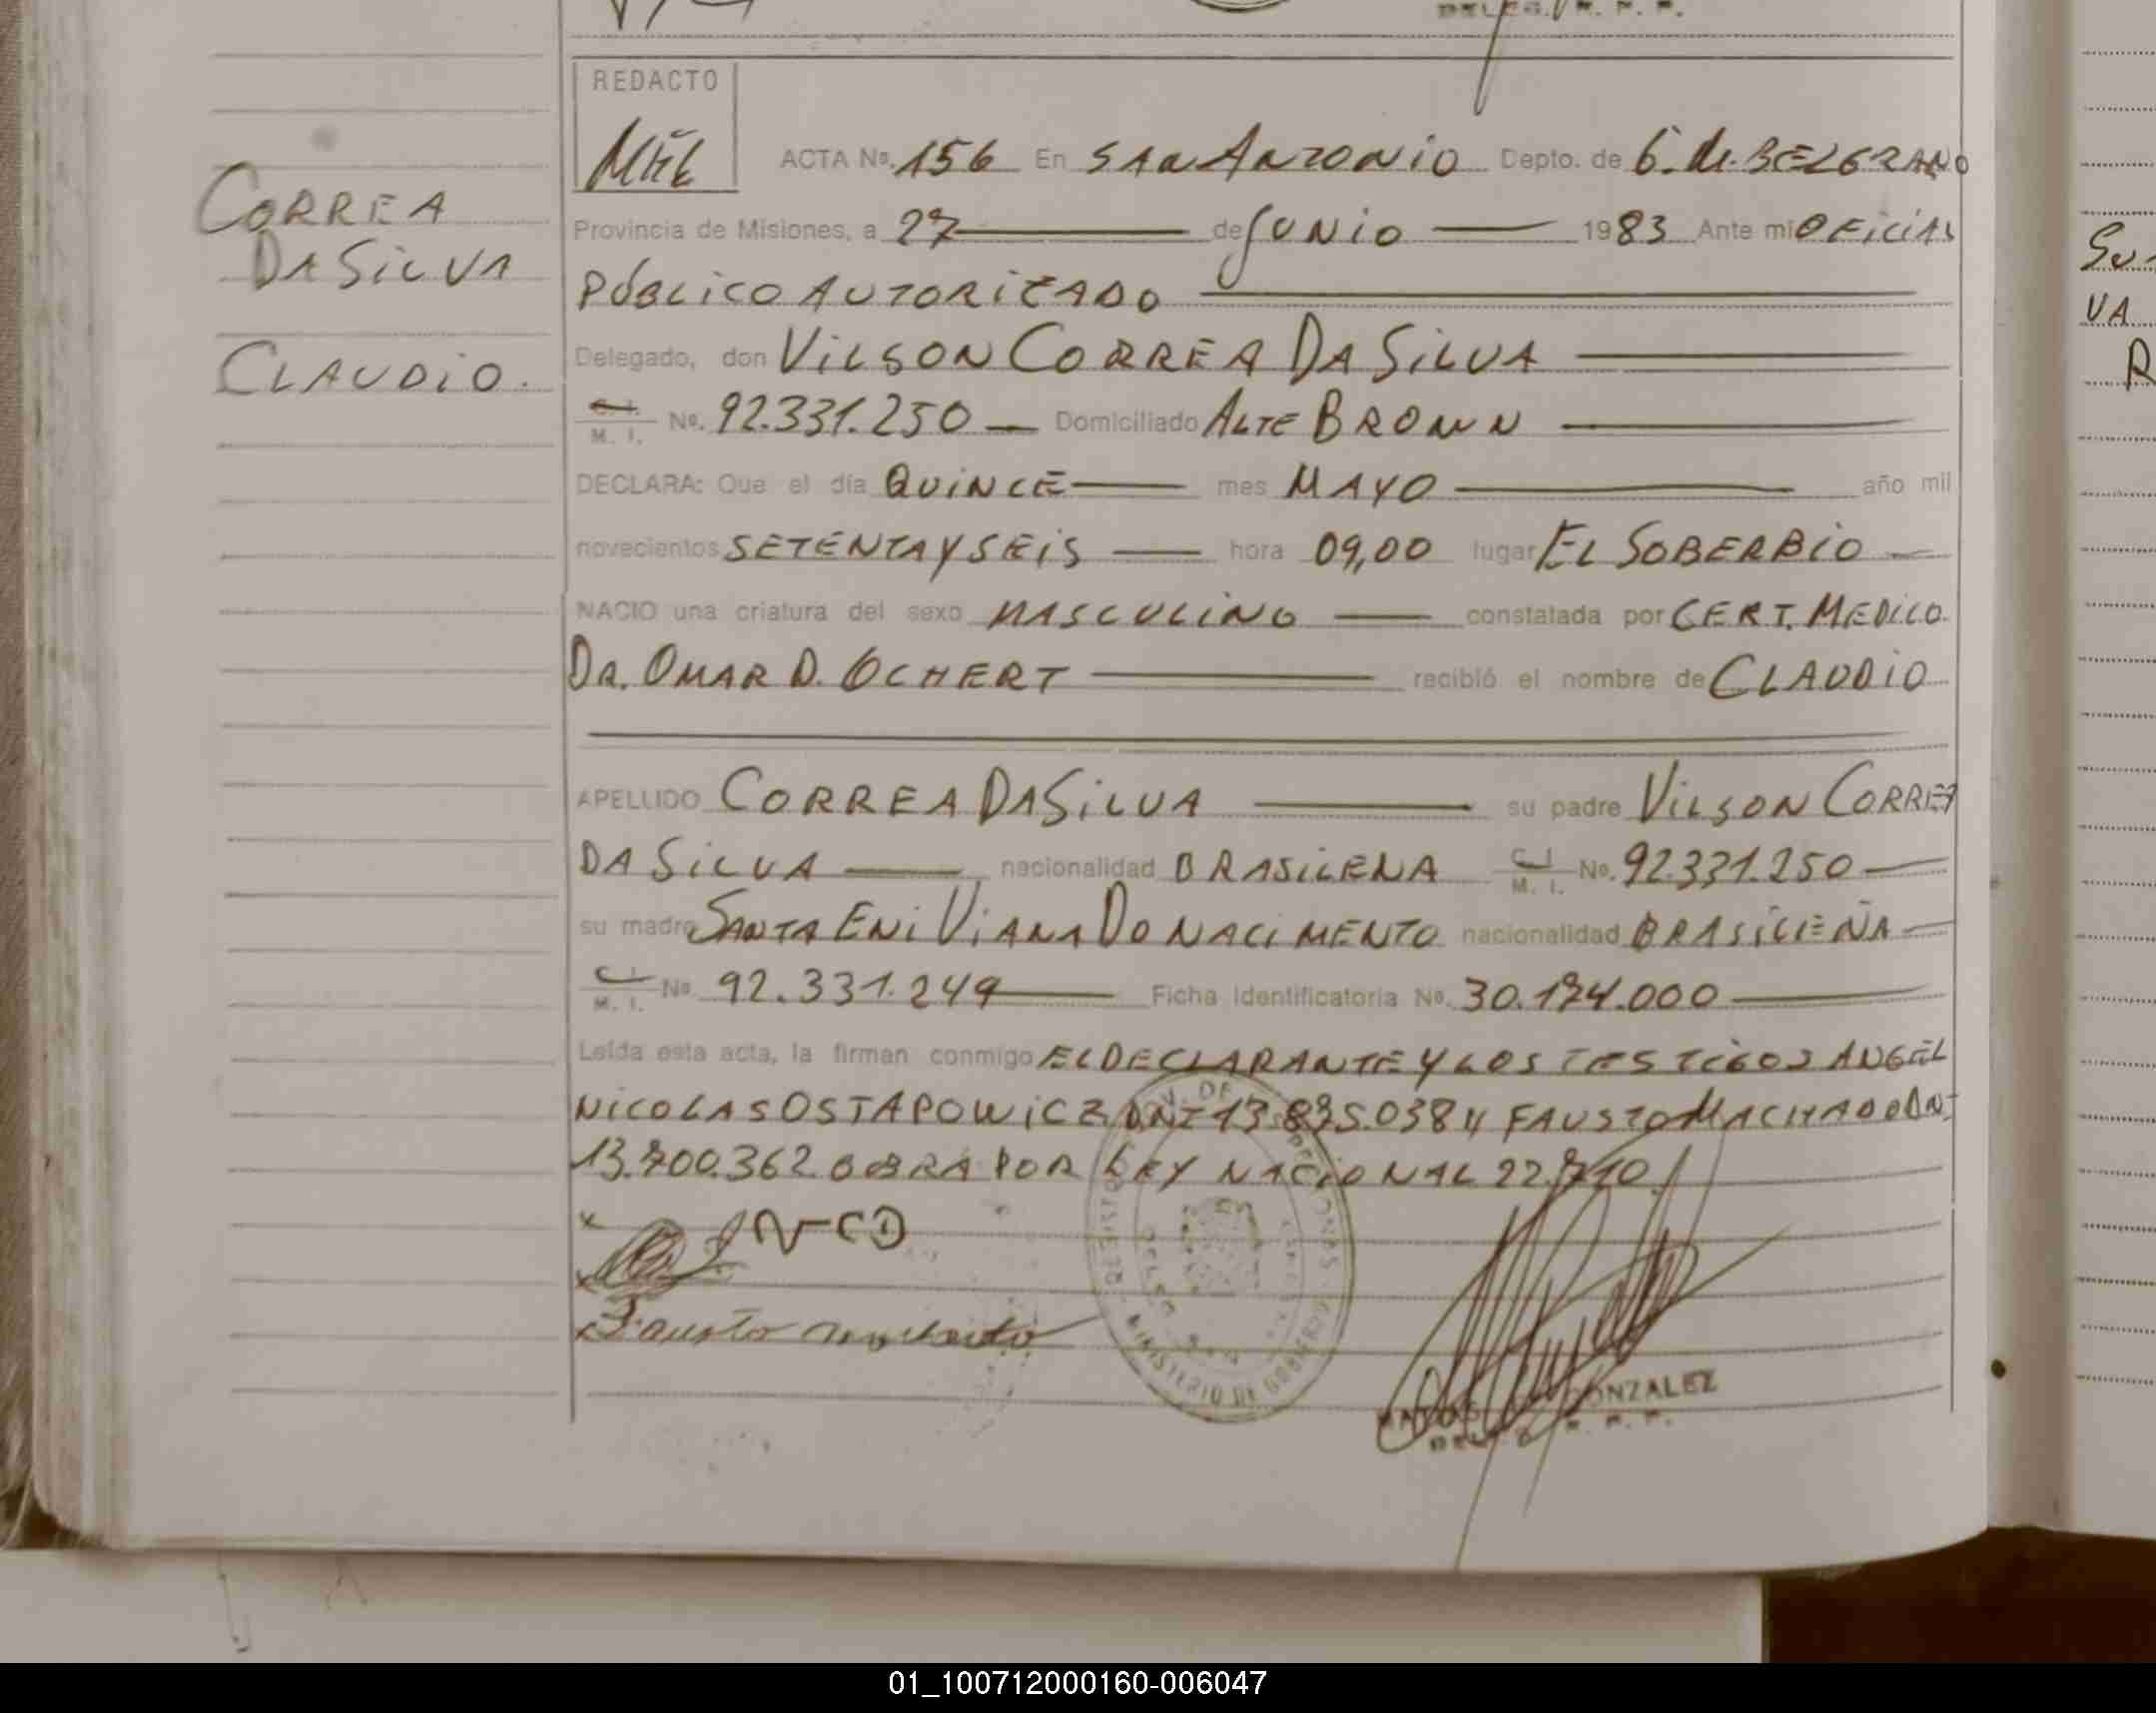 DELEG. R. P. P.
REDACTO
ACTA No. 156 En SAN ANTONIO Depto. de G. M. BELGRANO
Provincia de Misiones, a 27 de JUNIO 1983 Ante mi OFICIAL
PÚBLICO AUTORIZADO
Delegado, don VILSON CORREA DA SILVA
C. I. M. I. No. 92.331.250 Domiciliado ALTE BROWN
DECLARA: Que el día QUINCE mes MAYO año mil
novecientos SETENTA Y SEIS hora 09,00 lugar EL SOBERBIO
NACIO una criatura del sexo MASCULINO constatada por CERT. MEDICO.
DR. OMAR D. OCHERT recibió el nombre de CLAUDIO
APELLIDO CORREA DA SILVA su padre VILSON CORREA
DA SILVA nacionalidad BRASILENA C. I. M. I. No. 92.331.250
su madre SANTA ENI VIANA DO NACIMENTO nacionalidad BRASILEÑA
C. I. M. I. No 92.331.249 Ficha Identificatoria No. 30.174.000
Leída esta acta, la firman conmigo EL DECLARANTE Y LOS TESTIGOS ANGEL
NICOLAS OSTAPOWICZ DNI 13.835.038 Y FAUSTO MACHADO DNI
13.700.362 OBRA POR LEY NACIONAL 22.710
Fausto machado
GONZALEZ
R. P. P.
MINISTERIO DE GOBIERNO
CORREA
DA SILVA
CLAUDIO.
VA
R
01_100712000160-006047